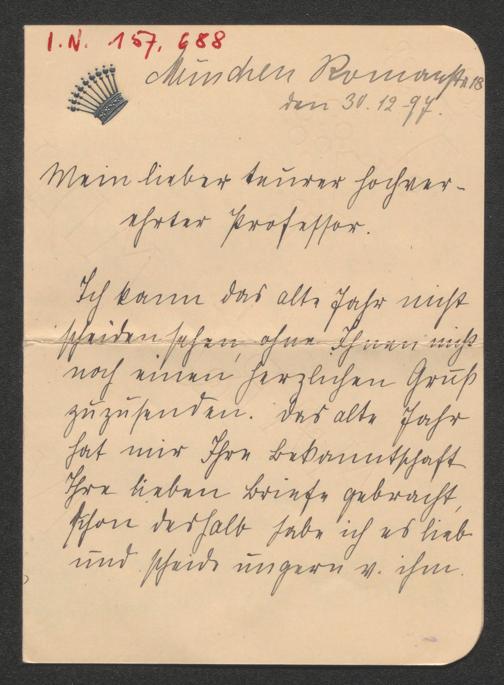 I.N. 157.688
München Romanstr 18
den 30.12.97.
Mein lieber teurer hochver-
ehrter Professor.
Ich kann das alte Jahr nicht
scheiden sehen, ohne Ihnen nicht
noch einen herzlichen Gruß
zuzusenden. Das alte Jahr
hat mir Ihre Bekanntschaft
Ihre lieben Briefe gebracht,
schon deshalb habe ich es lieb
und scheide ungern v. ihm.